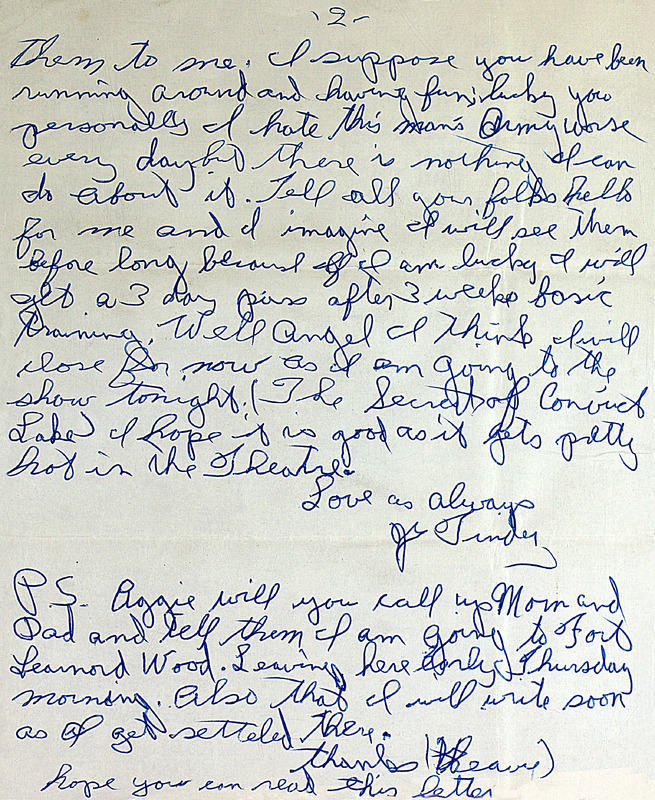 -2-
Them to me. I suppose you have been
running around and having fun, lucky you
personally I hate this man's Army worse
every day but there is nothing I can
do about it. Tell all your folks hello
for me and I imagine I will see them
before long because if I am lucky I will
get a 3 day pass after 3 weeks basic
training. Well Angel I think I will
close for now as I am going to the
show tonight. (The Secret of Convict
Lake) I hope it is good as it gets pretty
hot in the Theatre.
Love as always
Jr Tinder
P.S. Aggie will you call up Mom and
Dad and tell them I am going to Fort
Learnord Wood. Leaving here early Thursday
morning. Also that I will write soon
as I get setteled there.
thanks
hope you can read this letter